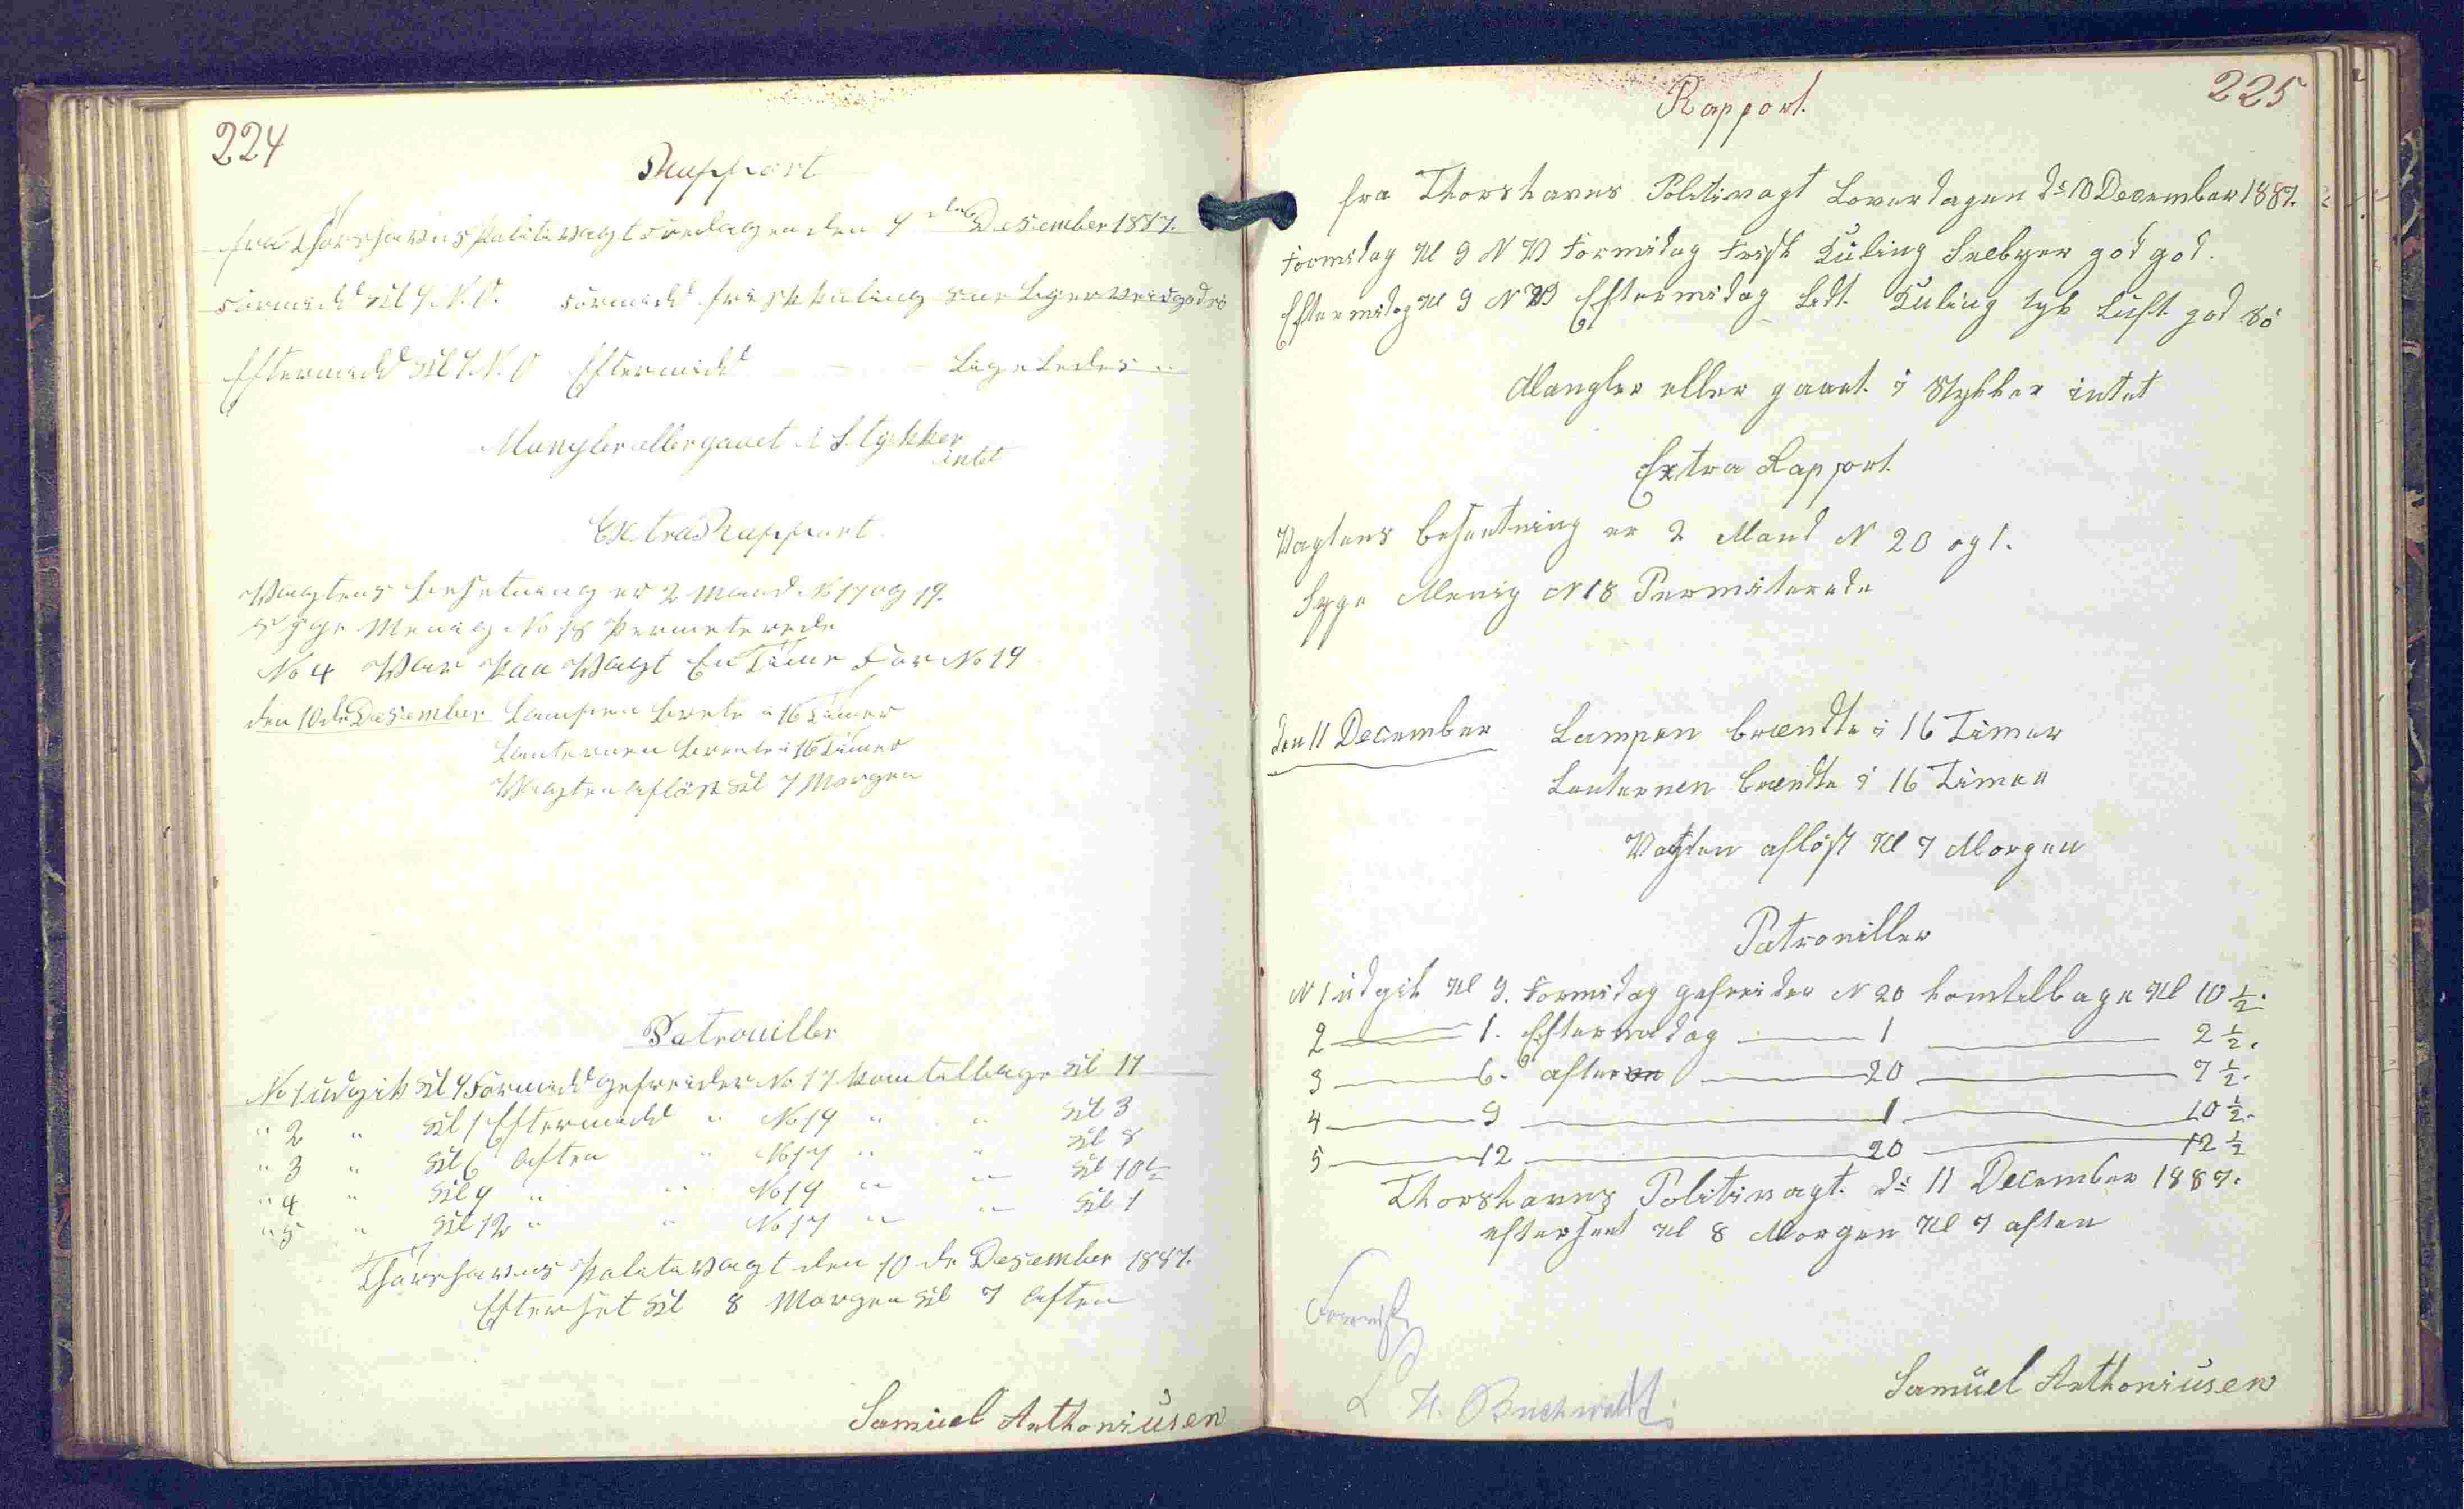 224
Rapport
fra Thorshavns Politivagt Fredagen den 9 den Desember 1887.
Formidd Kl 9 N.O. Formidd frisk kuling
Eftermidd Kl 9 N.O Eftermidd — — Lige Ledes
Mangler eller gaaet i Stykker
intet
Extra Rapport
Vagtens besetning er 2 Mand No 17 og 19.
Syge Menig No 18 Permeterede
No 4 Var Paa Vagt En Time For No 19
den 10 de Desember Lampen brente i 16 Timer
Lanternen brente i 16 Timer
Vagten Afløst Kl 7 Morgen
Patrouiller
No 1 udgik Kl 9 Formidd gefreider No 17 kom tilbage Kl 11
" 2 " Kl 1 Eftermidd " No 19 " " Kl 3
" 3 " Kl 6 Aften " No 17 " " Kl 8
" 4 " Kl 9 " " No 19 " " Kl 10½
" 5 " Kl 12 " " No 17 " " Kl 1
Thorshavns Politivagt den 10 de Desember 1887.
Efterset Kl 8 Morgen Kl 7 Aften
Samúel Anthoniúsen
225
Rapport.
fra Thorshavns Politivagt Løverdagen d: 10 December 1887.
Formidag Kl 9 N V Formidag Frisk Kuling Snebyer god
Eftermidag Kl 9 N V Eftermidag Lidt Kuling tyk Luft god sø
Mangler eller gaaet i Stykker intet
Extra Rapport
Vagtens besætning er 2 Mand N 20 og 1.
Syge Menig N 18 Permiterede
den 11 December Lampen brændte i 16 Timer
Lanternen brændte i 16 Timer
Vagten afløst Kl 7 Morgen
Patroniller
N 1 udgik Kl 9. Formidag gefreider N 20 kom tilbage Kl 10 ½.
2 — 1. Eftermidag — 1 — 2 ½.
3 — 6. aften — 20 — 7 ½.
4 — 9 — 1 — 10 ½.
5 — 12 — 20 — 12 ½
Thorshavns Politivagt. d: 11 December 1887.
efterseet Kl 8 Morgen Kl 7 aften
H. Buchwaldt
Samúel Anthoniúsen